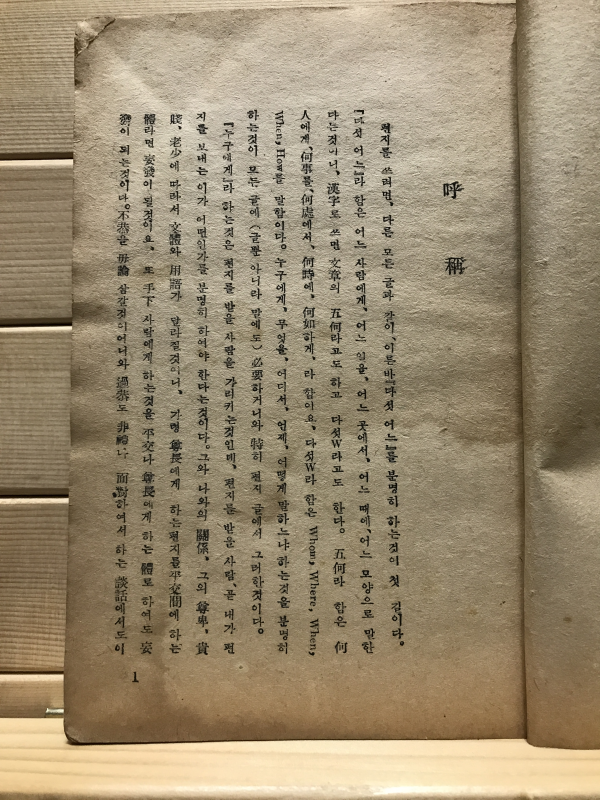 呼稱
편지를 쓰려면, 다른 모든 글과 같이, 이른바 『다섯 어느』를 분명히 하는것이 첫 길이다.
『다섯 어느』라 함은 어느 사람에게, 어느 일을, 어느 곳에서, 어느 때에, 어느 모양으로 말한
다는것이니, 漢字로 쓰면 文章의 五何라고도 하고 다섯W라고도 한다. 五何라 함은 何
人에게, 何事를, 何處에서, 何時에, 何如하게, 라 함이요, 다섯W라 함은 Whom, Where, When,
When, How를 말함이다. 누구에게, 무엇을, 어디서, 언제, 어떻게 말하느냐 하는것을 분명히
하는것이 모든 글에 (글뿐 아니라 말에도) 必要하거니와 特히 편지 글에서 그러한것이다.
『누구에게』라 하는것은 편지를 받을 사람을 가리키는것인데, 편지를 받을 사람, 곧 내가 편
지를 보내는 이가 어떤인가를 분명히 하여야 한다는것이다. 그와 나와의 關係, 그의 尊卑, 貴
賤, 老少에 따라서 文體와 用語가 달라질것이니, 가령 尊長에게 하는편지를 平交間에 하는
體라면 妄發이 될것이요, 또 手下 사람에게 하는것을 平交나 尊長에게 하는 體로 하여도 妄
發이 되는것이다. 不恭을 毋論 삼갈것이어니와 過恭도 非禮나 面對하여서 하는 談話에서도이
1